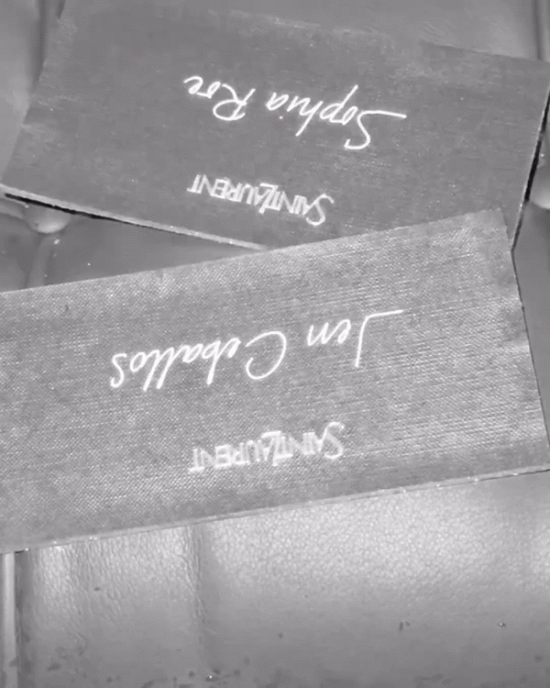 SAINT LAURENT
Sophia Roe
SAINT LAURENT
Jen Ceballos